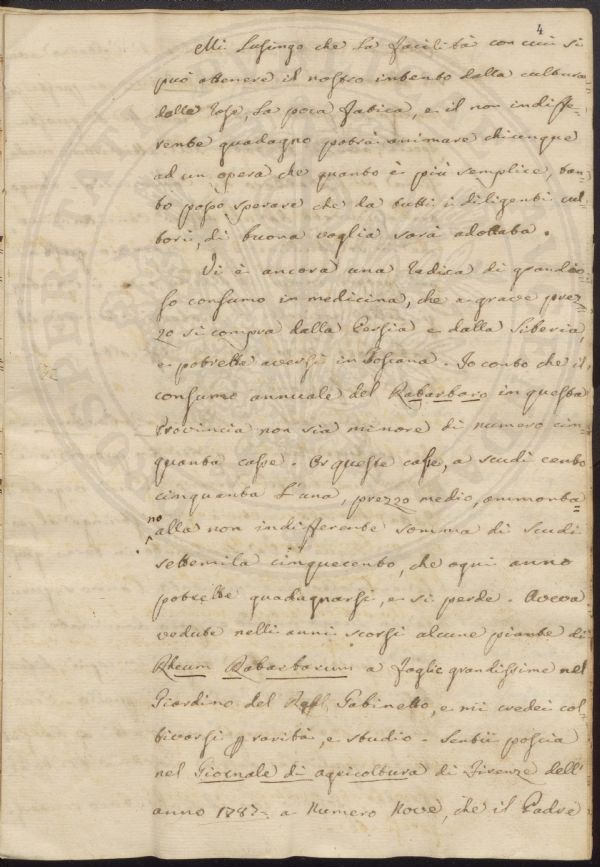 4
Mi lusingo che la facilità con cui si
può ottenere il nostro intento dalla cultura
delle rose, la poca fatica, e il non indiffe=
rente guadagno potrà animare chiunque
ad un opera che quanto è più semplice, tan=
to posso sperare che da tutti i diligenti cul=
tori, di buona voglia sarà adottata.
Vi è ancora una radica di grandio=
so consumo in medicina, che a grave prez=
zo si compra dalla Persia e dalla Siberia,
e potrebbe aversi in Toscana. Io conto che il
consumo annuale del Rabarbaro in questa
Provincia non sia minore di numero cin=
quanta casse. Or queste casse, a scudi cento
cinquanta l'una, prezzo medio, ammonta=
no alla non indifferente somma di scudi
settemila cinquecento, che ogni anno
potrebbe guadagnarsi, e si perde. Aveva
vedute nelli anni scorsi alcune piante di
Rheum Rabarbarum a foglie grandissime nel
Giardino del Gabinetto, e mi credei col=
tivarsi rarità, e studio. Sentii poscia
nel Giornale di agricoltura di Firenze dell'
anno 1787= a Numero Nove, che il Padre